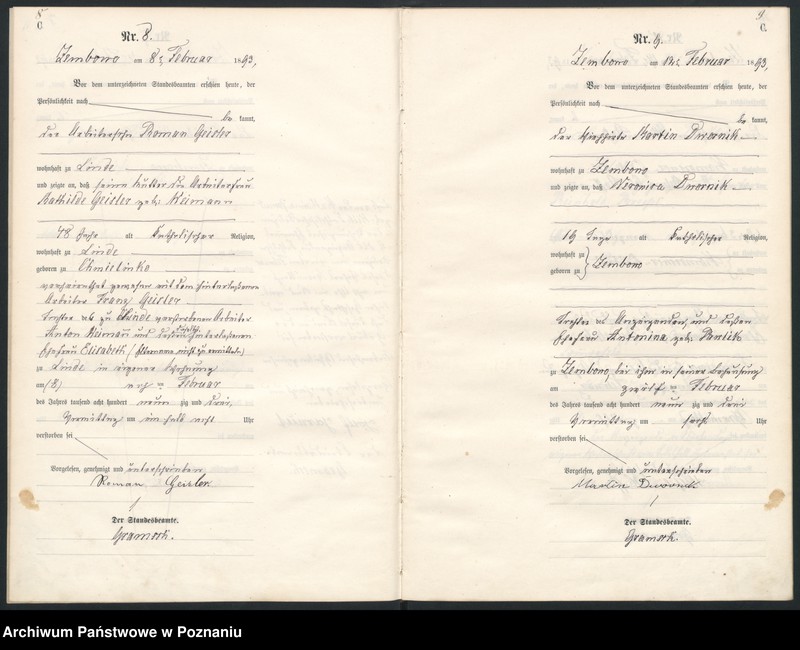 8
C.
Nr. 8.
Zembowo am 8ten Februar 1893,
Vor dem unterzeichneten Standesbeamten erschien heute, der
Persönlichkeit nach
be kannt,
der Arbeitersohn Roman Geisler
wohnhaft zu Linde
und zeigte an, daß seine Mutter die Arbeiterfrau
Mathilde Geisler geb: Neimann
48 Jahr alt katholischer Religion,
wohnhaft zu Linde
geboren zu Chmielinko
verheirathet gewesen mit dem hinterlassenen
Arbeiter Franz Geisler
Tochter des zu Linde verstorbenen Arbeiter
Anton Neiman und dessen hinterlassenen
Ehefrau Elisabeth (Name nicht zu ermitteln)
zu Linde in eigener Wohnung
am (8) acht ten Februar
des Jahres tausend acht hundert neun zig und drei,
Vormittag um ein halb acht Uhr
verstorben sei
Vorgelesen, genehmigt und unterschrieben
Roman Geisler
Der Standesbeamte.
9
C.
Nr. 9.
Zembowo am 12ten Februar 1893,
Vor dem unterzeichneten Standesbeamten erschien heute, der
Persönlichkeit nach
be kannt,
der Martin Dwornik
wohnhaft zu Zembowo
und zeigte an, daß Veronica Dwornik
19 Tage alt katholischer Religion,
wohnhaft zu
geboren zu Zembowo
Tochter des Anzeigenden, und dessen
Ehefrau Antonina geb:
zu Zembowo, bei ihm in seiner Behausung
am zwölf ten Februar
des Jahres tausend acht hundert neun zig und drei
Vormittag um Uhr
verstorben sei
Vorgelesen, genehmigt und unterschrieben
Martin Dwornik
Der Standesbeamte.
Archiwum Państwowe w Poznaniu